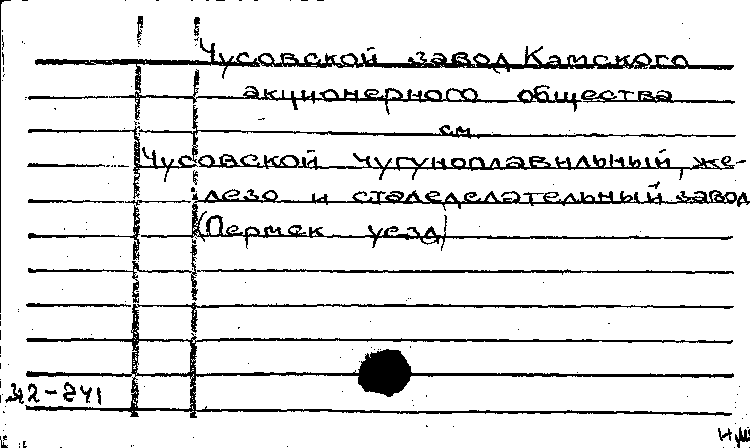 Чусовской завод Камского
акционерного общества
см.
Чусовской чугуноплавильный, же-
лезо и сталеделательный завод
(Пермск уезд)